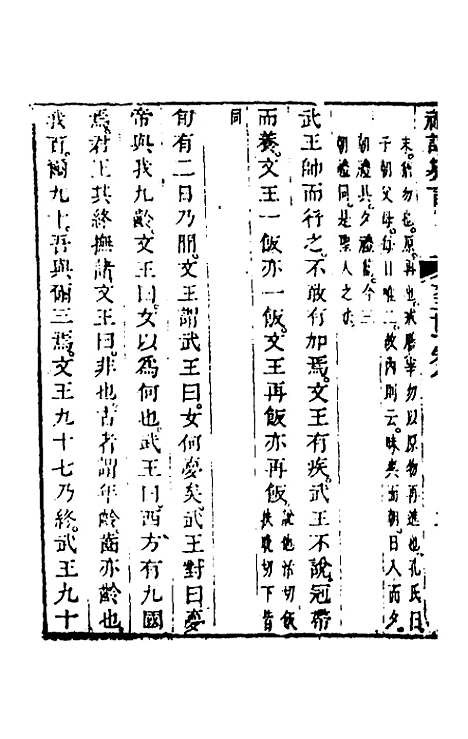 末猶勿也原再也求應毕勿以原物再進也孔氏曰
子朝父母每日唯二故內則云昧爽而朝日入而夕
朝禮具夕禮簡今三
朝禮同是聖人之法
武王帥而行之不敢有加焉文王有疾武王不說冠帶
而養文王一飯亦一飯文王再飯亦再飯說他活切飯扶晚切下皆
同
旬有二日乃間文王謂武王曰女何夢矣武王對曰夢
帝與我九齡文王曰女以爲何也武王曰西方有九國
焉君王其終撫諸文王曰非也古者謂年齡齒亦齡也
我百爾九十吾與爾三焉文王九十七乃終武王九十